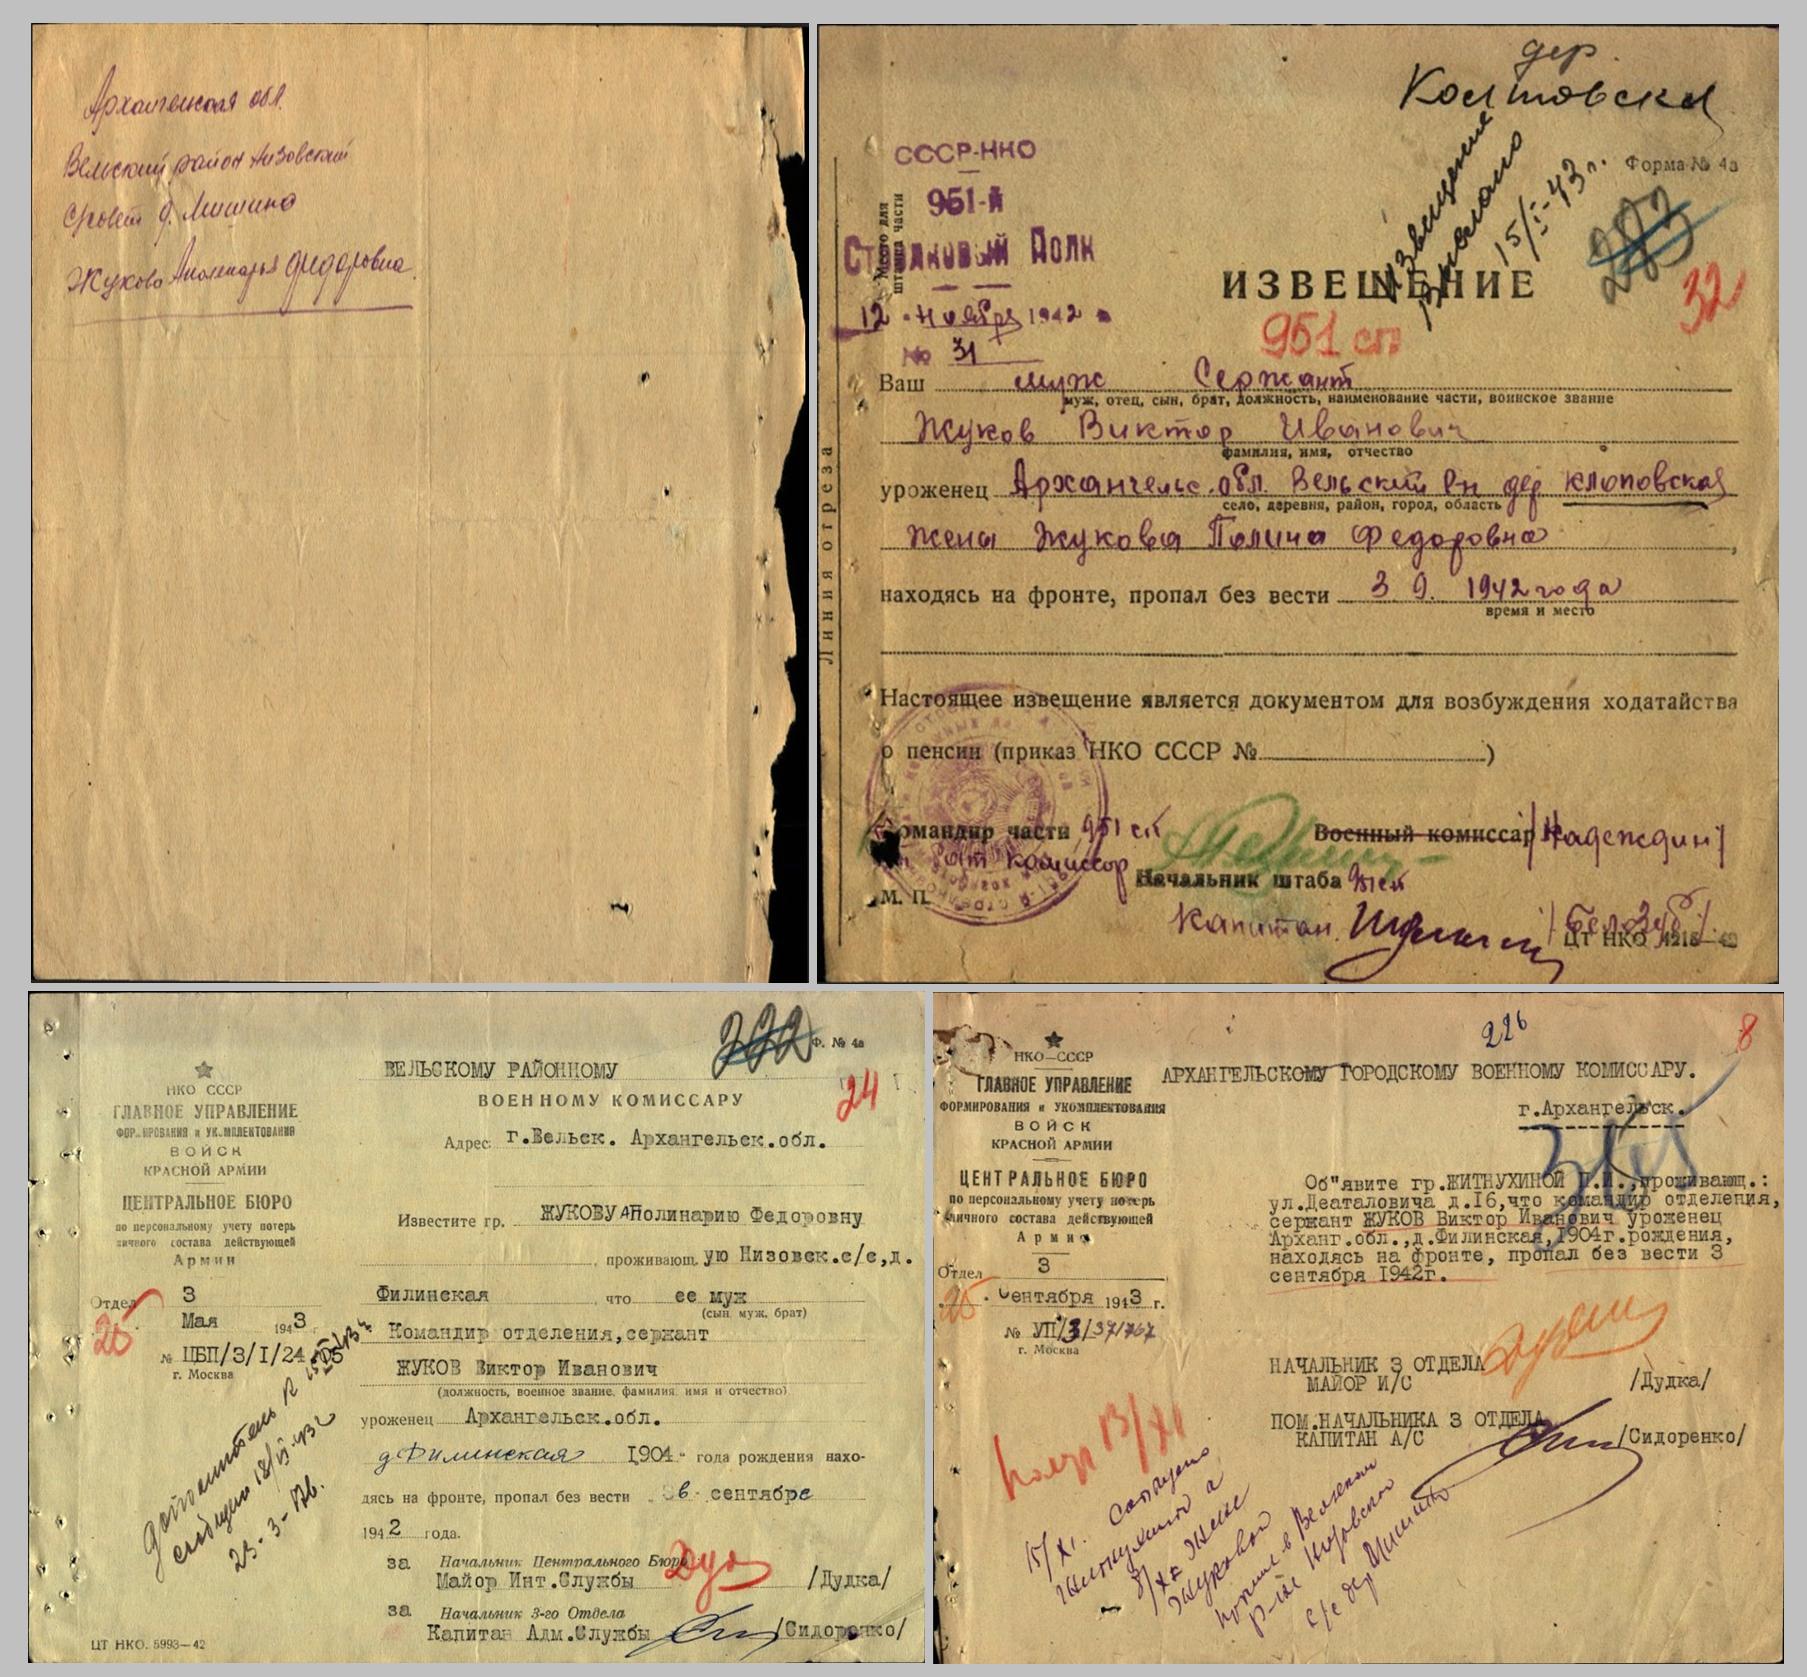 Архангельская обл.
Вельский район Низовский
С/совет д. Мишино
Жукова Аполинарья Федоровна
дер.
СССР-НКО
951-й
Стрелковый Полк
12 Ноября 1942
№ 31
Место для
штампа части
Линия отреза
Извещение
15/I-43 г.
Форма № 4а
32
ИЗВЕЩЕНИЕ
951 сп
Ваш муж Сержант
муж, отец, сын, брат, должность, наименование части, воинское звание
Жуков Виктор Иванович
фамилия, имя, отчество
уроженец Архангельс. обл. Вельский Рн дер Клоповская
село, деревня, район, город, область
Жена Жукова Полина Федоровна
находясь на фронте, пропал без вести 3 9. 1942 года
время и место
Настоящее извещение является документом для возбуждения ходатайства
о пенсии (приказ НКО СССР № )
Командир части 951 сп Военный комиссар /Надеждин/
Бат Комиссар
Начальник штаба
М. П.
Капитан /Белозуб/
ЦТ НКО 4218—42
НКО СССР
ГЛАВНОЕ УПРАВЛЕНИЕ
ФОРМИРОВАНИЯ и УКОМПЛЕКТОВАНИЯ
ВОЙСК
КРАСНОЙ АРМИИ
ЦЕНТРАЛЬНОЕ БЮРО
по персональному учету потерь
личного состава действующей
Армии
Отдел 3
25
Мая 1943 г.
№ ЦБП/3/I/24
г. Москва
сообщено 18/VI-43 г
ЦТ НКО. 5993—42
222
Ф. № 4а
24
ВЕЛЬСКОМУ РАЙОННОМУ
ВОЕННОМУ КОМИССАРУ
Адрес: г.Вельск. Архангельск.обл.
Известите гр. ЖУКОВУ Аполинарию Федоровну
проживающ. ую Низовск.с/с,д.
Филинская , что ее муж
(сын, муж, брат)
Командир отделения,сержант
ЖУКОВ Виктор Иванович
(должность, военное звание, фамилия, имя и отчество)
уроженец Архангельск.обл.
д Филинская 1904 - года рождения нахо-
дясь на фронте, пропал без вести сентября
1942 года.
за Начальник Центрального Бюро
Майор Инт.Службы /Дудка/
за Начальник 3-го Отдела
Капитан Адм.Службы /Сидоренко/
НКО—СССР
ГЛАВНОЕ УПРАВЛЕНИЕ
ФОРМИРОВАНИЯ и УКОМПЛЕКТОВАНИЯ
ВОЙСК
КРАСНОЙ АРМИИ
ЦЕНТРАЛЬНОЕ БЮРО
по персональному учету потерь
личного состава действующей
Армии
Отдел 3
25
Сентября 1943 г.
№ УП/3/371767
г. Москва
226
8
АРХАНГЕЛЬСКОМУ ГОРОДСКОМУ ВОЕННОМУ КОМИССАРУ.
г.Архангельск.
Об"явите гр.ЖИТНУХИНОЙ П.И.,проживающ.:
ул.Деаталовича д.16,что командир отделения,
сержант ЖУКОВ Виктор Иванович уроженец
Арханг.обл.,д.Филинская,1904г.рождения,
находясь на фронте, пропал без вести 3
сентября 1942г.
НАЧАЛЬНИК 3 ОТДЕЛА
МАЙОР И/С /Дудка/
ПОМ.НАЧАЛЬНИКА 3 ОТДЕЛА
КАПИТАН А/С /Сидоренко/
13/XI
15/XI. Сообщено
Житнухиной а
жене
Жуковой
в Вельском
р-не Низовском
с/с дер Мишино